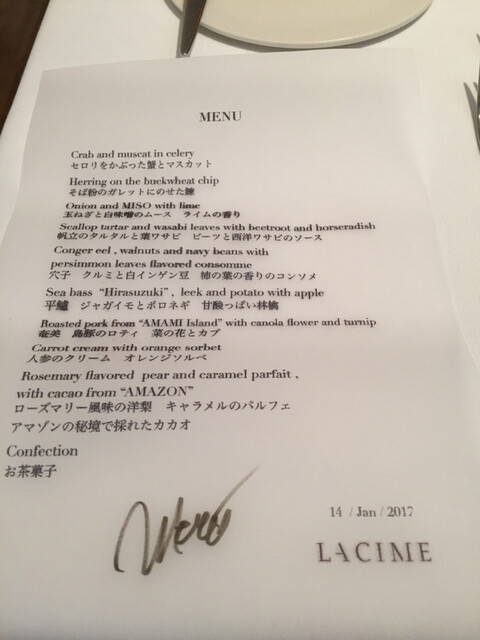 MENU
Crab and muscat in celery
セロリをかぶった蟹とマスカット
Herring on the buckwheat chip
そば粉のガレットにのせた鰊
Onion and MISO with lime
玉ねぎと白味噌のムース　ライムの香り
Scallop tartar and wasabi leaves with beetroot and horseradish
帆立のタルタルと葉ワサビ　ビーツと西洋ワサビのソース
Conger eel , walnuts and navy beans with
persimmon leaves flavored consomme
穴子　クルミと白インゲン豆　柿の葉の香りのコンソメ
Sea bass "Hirasuzuki" , leek and potato with apple
平鱸　ジャガイモとポロネギ　甘酸っぱい林檎
Roasted pork from "AMAMI Island" with canola flower and turnip
奄美　島豚のロティ　菜の花とカブ
Carrot cream with orange sorbet
人参のクリーム　オレンジソルベ
Rosemary flavored pear and caramel parfait ,
with cacao from "AMAZON"
ローズマリー風味の洋梨　キャラメルのパルフェ
アマゾンの秘境で採れたカカオ
Confection
お茶菓子
14 / Jan / 2017
LACIME